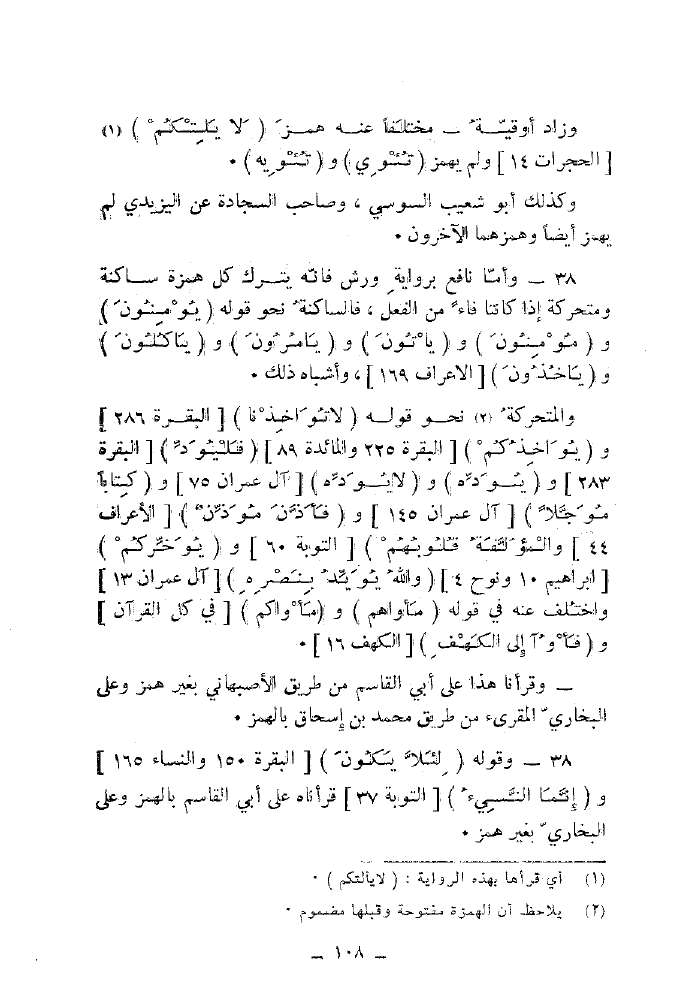 وزاد أوقيّة ـ مختلفاً عنه همزَ ( لا يَلِتْكُمْ ) (١)
[ الحجرات ١٤ ] ولم يهمز ( تُئْوِي ) و ( تُئْوِيه ) ٠
وكذلك أبو شعيب السوسي ، وصاحب السجادة عن اليزيدي لم
يهمز أيضاً وهمزهما الآخرون ٠
٣٨ ـ وأمّا نافع بروايةِ ورش فانّه يترك كل همزة ساكنة
ومتحركة إذا كانتا فاءً من الفعل ، فالساكنةُ نحو قوله ( يُوْمِنُونَ )
و ( مُوْمِنُونَ ) و ( ياْتُونَ ) و ( يَامُرُونَ ) و ( يَاكُلُونَ )
و ( يَاخُذُونَ ) [ الاعراف ١٦٩ ] ، وأشباه ذلك ٠
والمتحركةُ (٢) نحو قوله ( لاتُوَاخِذْنا ) [ البقرة ٢٨٦ ]
و ( يُوَاخِذُكُمْ ) [ البقرة ٢٢٥ والمائدة ٨٩ ] ( فَلْيُوَدِّ ) [ البقرة
٢٨٣ ] و ( يُوَدِّه ) و ( لايُوَدِّه ) [ آل عمران ٧٥ ] و ( كِتاباً
مُوَجَّلاً ) [ آل عمران ١٤٥ ] و ( فَأَذَّنَ مُوَذِّنٌ ) [ الأعراف
٤٤ ] والمُؤلَّفَةِ قُلُوبُهُمْ ) [ التوبة ٦٠ ] و ( يُوَخِّركُمْ )
[ ابراهيم ١٠ ونوح ٤ ] ( واللهُ يُوَيِّدُ بِنَصْرِهِ ) [ آل عمران ١٣ ]
واختلف عنه في قوله ( مَأواهم ) و ( مَأْواكم ) [ في كل القرآن ]
و ( فَأْوُآ إلى الكَهْفِ ) [ الكهف ١٦ ] ٠
ـ وقرأنا هذا على أبي القاسم من طريق الأصبهاني بغير همز وعلى
البخاريّ المقرىء من طريق محمد بن إسحاق بالهمز ٠
٣٨ ـ وقوله ( لِئَلاَّ يَكُونَ ) [ البقرة ١٥٠ والنساء ١٦٥ ]
و ( إنَّمَا النَّسِيءُ ) [ التوبة ٣٧ ] قرأناه على أبي القاسم بالهمز وعلى
البخاريّ بغير همز ٠
(١) أي قرأها بهذه الرواية : ( لايألتكم ) ٠
(٢) يلاحظ أن الهمزة مفتوحة وقبلها مضموم ٠
ـ ١٠٨ ـ